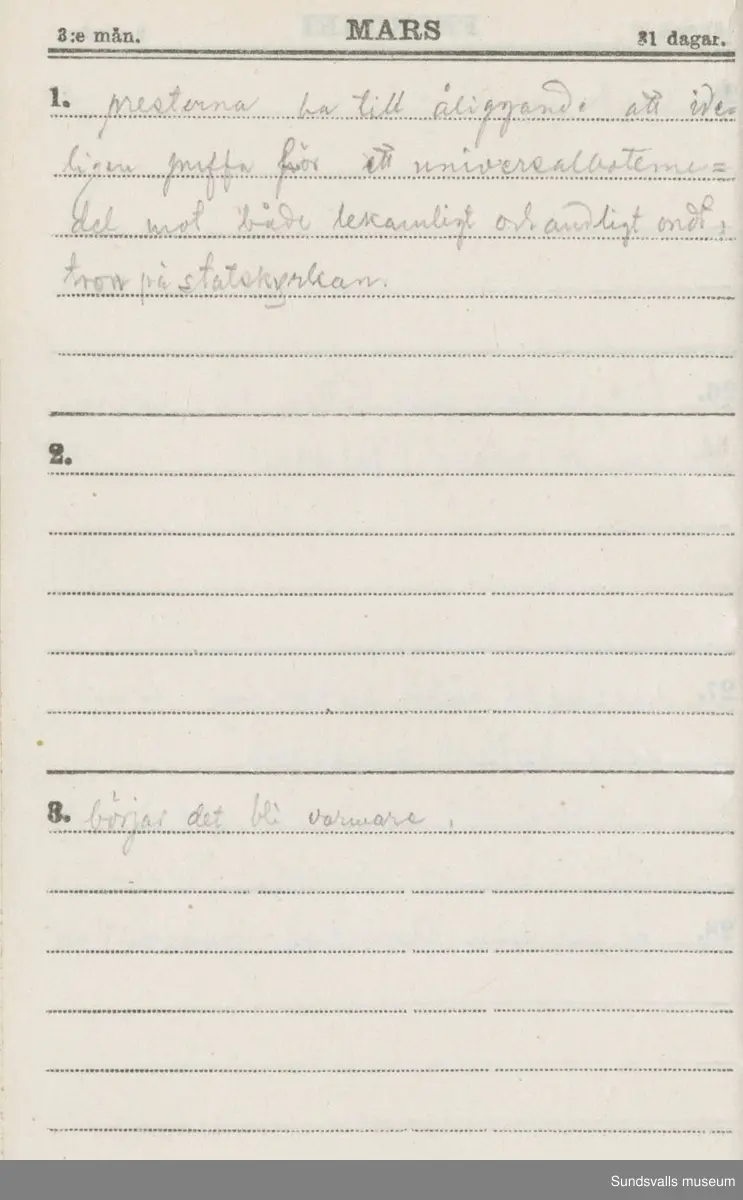 3:e mån. MARS 31 dagar.
1. presterna ha till åliggande att ide-
ligen puffa för ett universalboteme=
del mot både lekamligt och andligt ondt,
tron på statskyrkan.
2.
3. börjar det bli varmare.
Sundsvalls museum